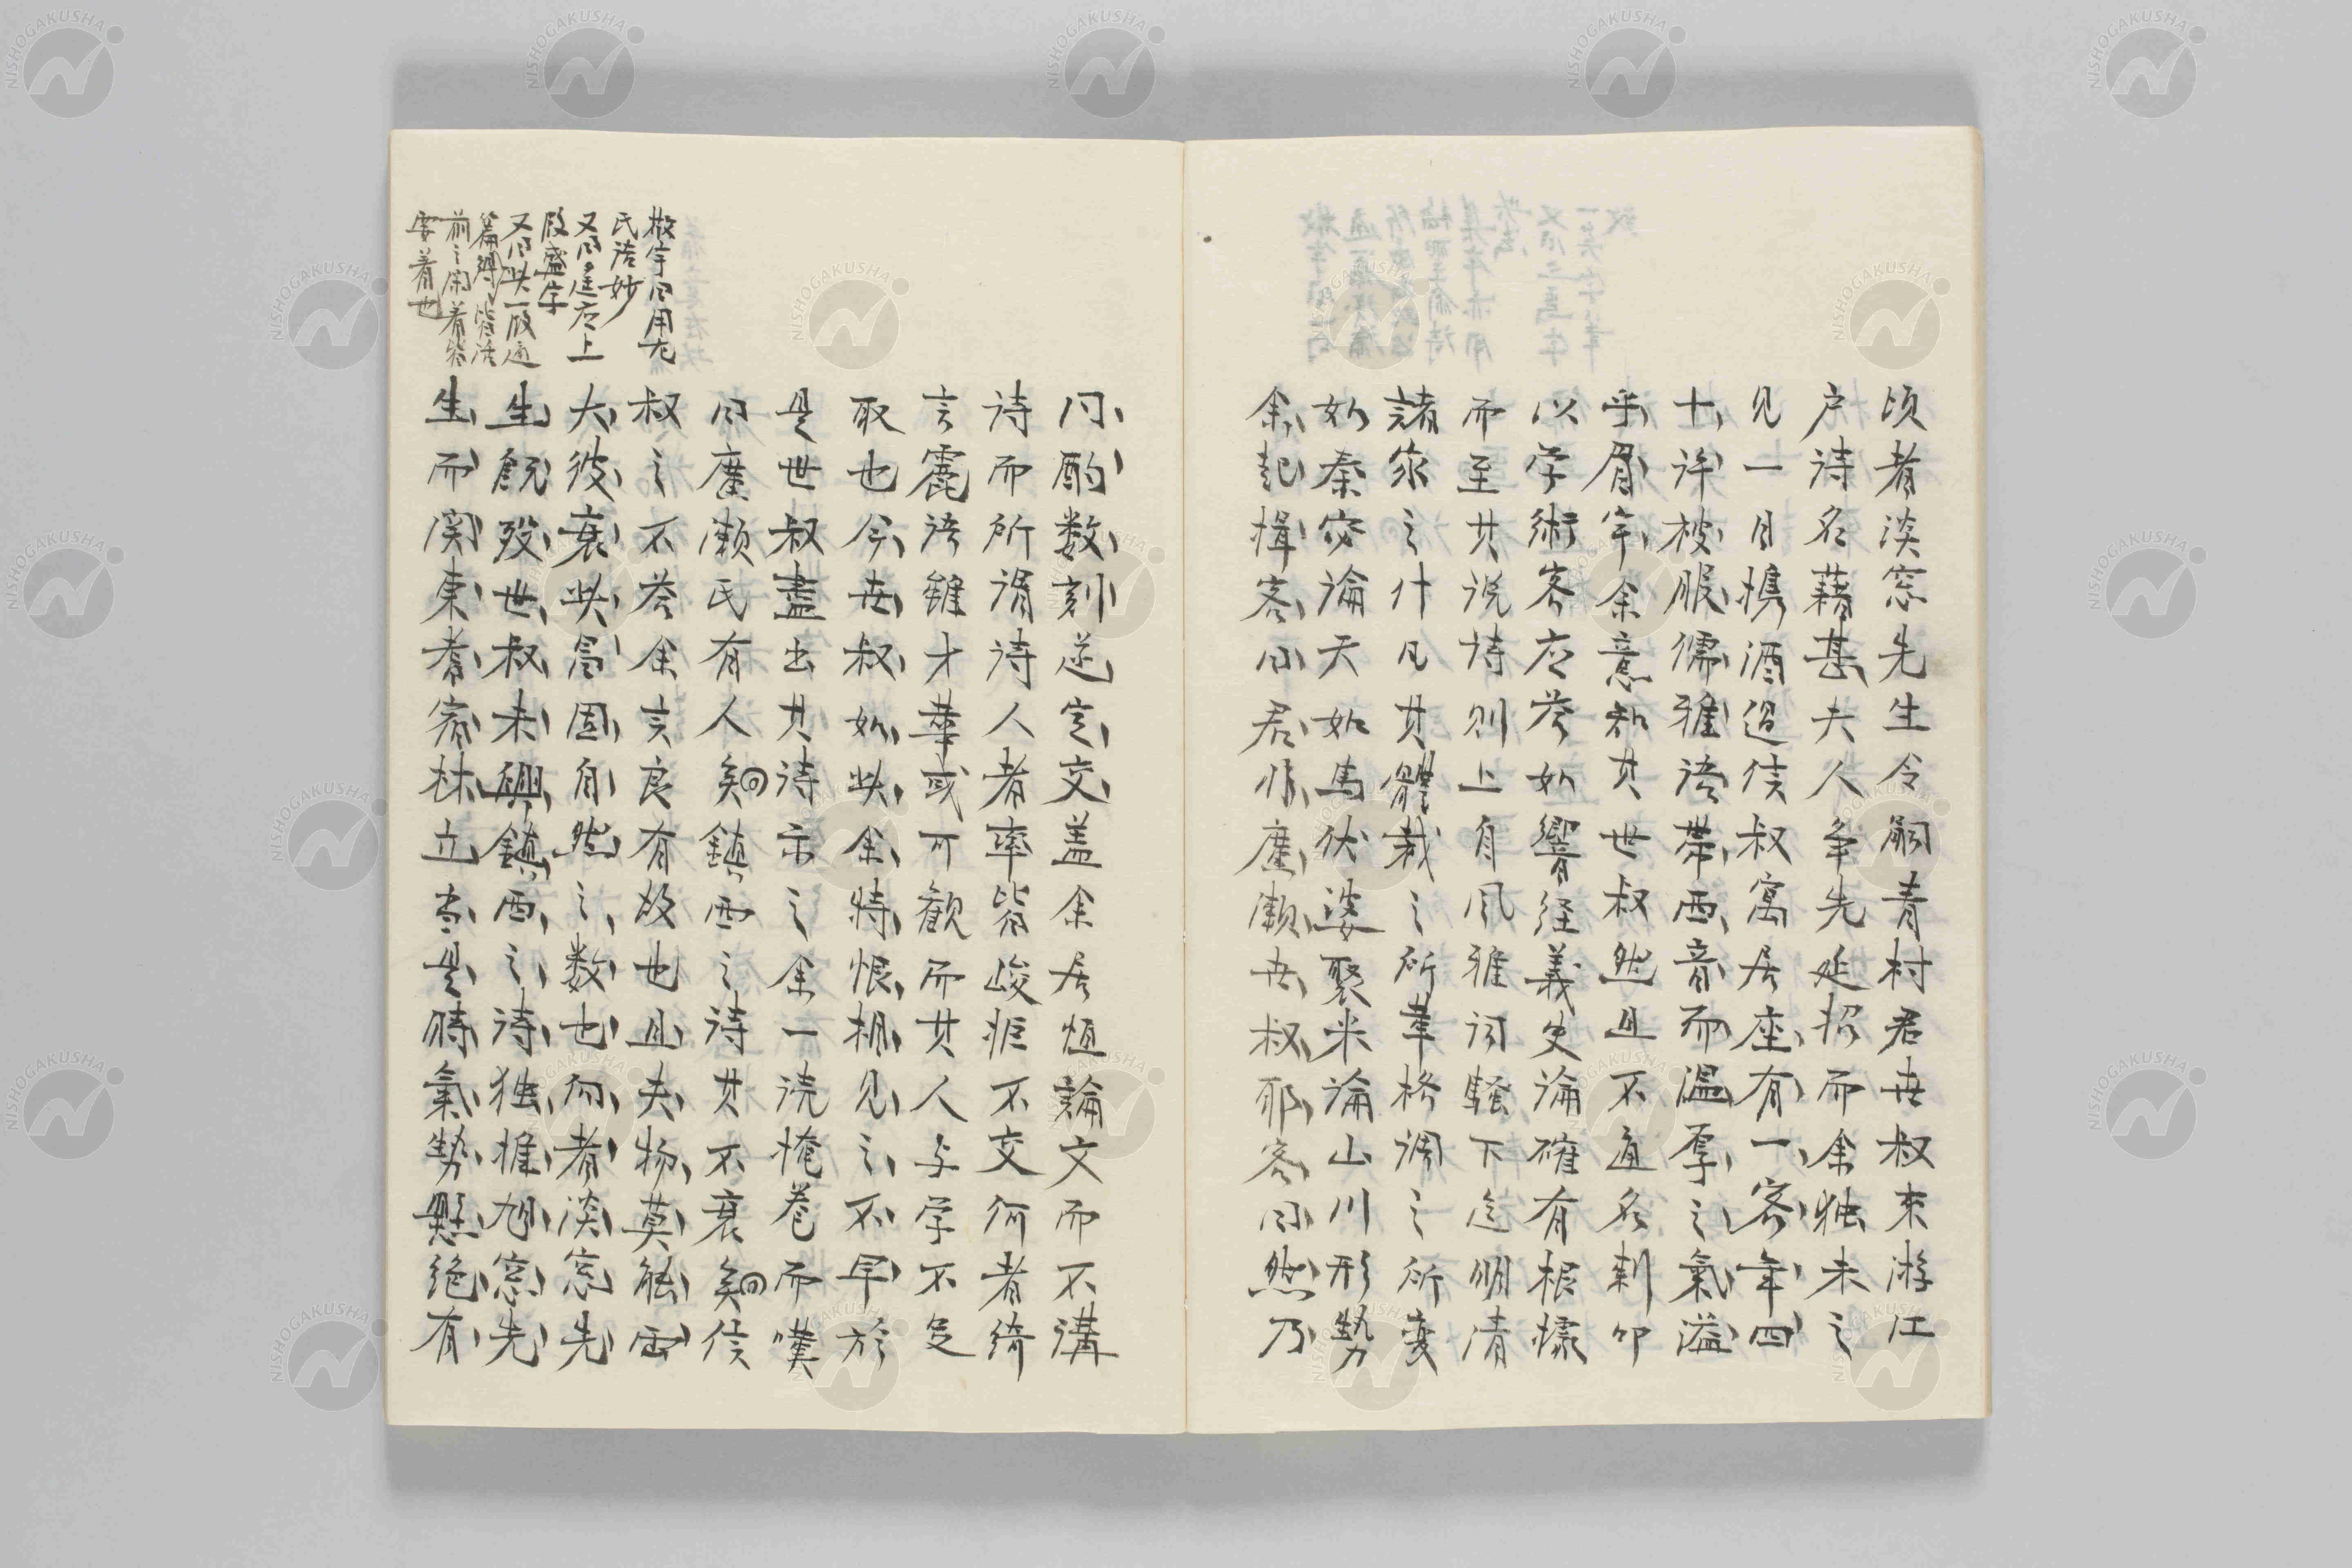 頃者淡窓先生令嗣青村君世叔来游江
戸詩名藉甚夫人争先延招而余独未之
見一日携酒過信叔寓居座有一客年四
十許被服儒雅語帯西音而温厚之氣溢
乎眉宇余意知其世叔然且不通名刺叩
以学術客応答如響経義史論確有根拠
而至其説詩則上自風雅詞騒下迄明清
諸家之什凡其體裁之所 格調之所変
如秦宓論天如馬伏波聚米論山川形勢
余起揖客曰君非廣瀬世叔耶客曰然乃
问酌数刻遂定交盖余居恒論文而不講
詩而所謂詩人者率皆峻拒不交何者綺
言麗語雖才華或可歓而其人与学不足
取也今世叔如此余特恨相見之不早於
是世叔盡出其詩示之余一読掩巻而嘆
曰廣瀬氏有人矣鎮西之詩其不衰矣信
叔之不答余言良有故也且夫物莫能両
大彼衰此
固自然之数也向者淡窓先
生既歿世叔未興鎮西之詩独推旭窓先
生而関東耆宿林立于是時氣勢懸絶有
敬宇曰用左
氏語妙
又曰遥応上
段盛字
又曰此一段通
篇 皆活
前之閑着皆
要着也
NISHOGAKUSHA